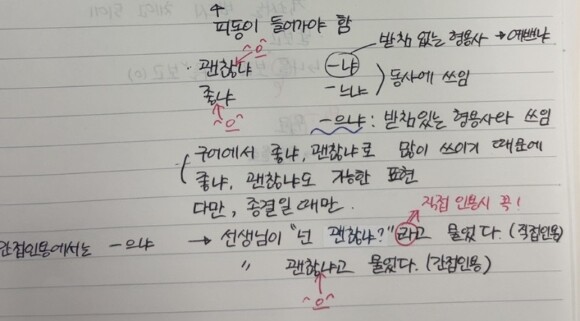 피동이 들어가야 함
괜찮냐 ^으^
좋냐 ^으^
-냐 받침 없는 형용사 → 예쁘냐
-느냐 ) 동사에 쓰임
-으냐 : 받침있는 형용사랑 쓰임
구어에서 좋냐, 괜찮냐로 많이 쓰이기 때문에
좋냐, 괜찮냐도 가능한 표현
다만, 종결일 때만.
직접 인용시 꼭!
간접인용에서는 -으냐 → 선생님이 "넌 괜찮냐?"라고 물었다. (직접인용)
" 괜찮냐고 물었다. (간접인용)
^으^